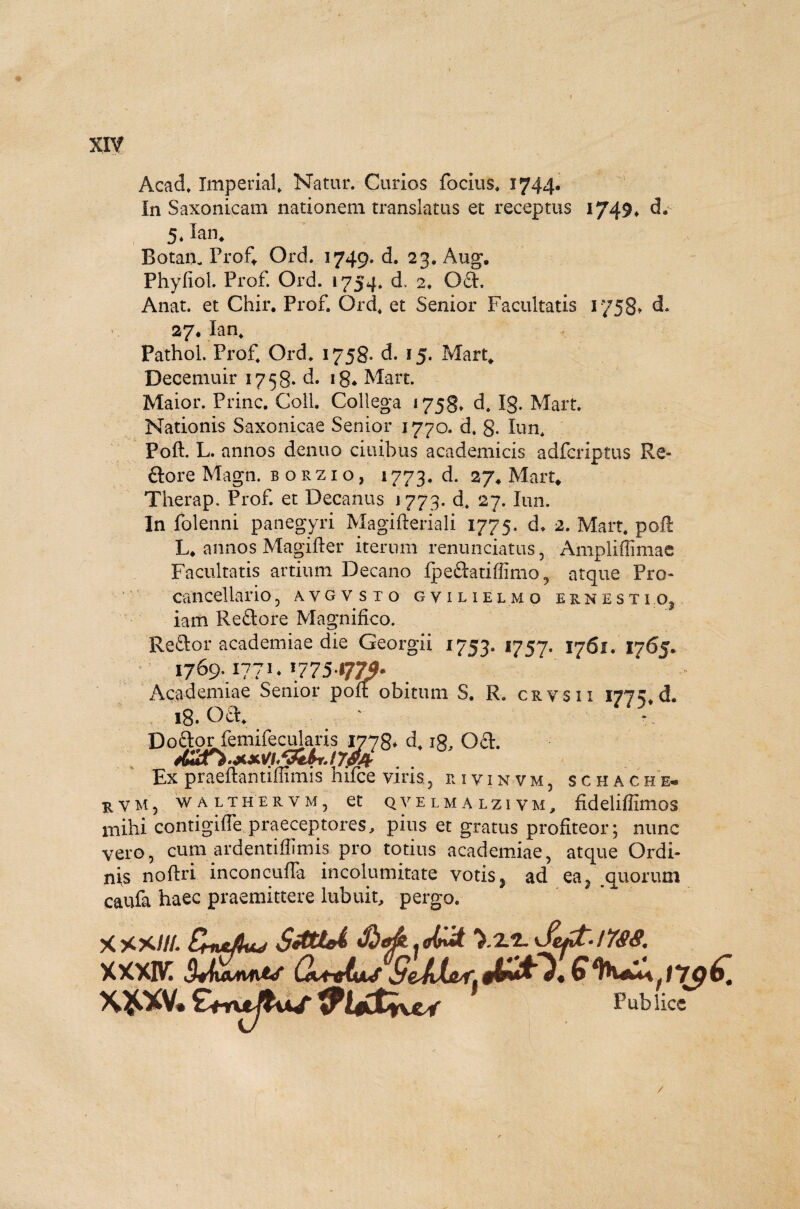 XIV
Acad. Imperial. Natur. Curios ſocius. 1744.
In Saxonicam nationem translatus et receptus 1749. d.
5. Ian.
Botan. Prof. Ord. 1749. d. 23. Aug.
Phyſiol. Prof. Ord. 1754. d. 2. Oct.
Anat. et Chir. Prof. Ord. et Senior Facultatis 1758. d.
27. Ian.
Pathol. Prof. Ord. 1758. d. 15. Mart.
Decemuir 1758. d. 18. Mart.
Maior. Princ. Coll. Collega 1758. d. 18. Mart.
Nationis Saxonicae Senior 1770. d. 8. Iun.
Poſt. L. annos denuo ciuibus academicis adſcriptus Re-
ctore Magn. BORZIO, 1773. d. 27. Mart.
Therap. Prof. et Decanus 1773. d. 27. Iun.
In ſolenni panegyri Magiſteriali 1775. d. 2. Mart. poſt
L. annos Magiſter iterum renunciatus, Ampliſſimae
Facultatis artium Decano ſpectatiſſimo, atque Pro-
cancellario, AVGVSTO GVILIELMO ERNESTIO,
iam Rectore Magnifico.
Rector academiae die Georgii 1753. 1757. 1761. 1765.
1769. 1771. 1775. 1779.
Academiae Senior poſt obitum S. R. CRVSII 1775. d.
18. Oct.
Doctor ſemiſecularis 1778. d. 18. Oct.
obiit d. xxvi. Febr. 1784
Ex praeſtantiſſimis hiſce viris, RIVINVM, SCHACHE-
RVM, WALTHERVM, et QVELMALZIVM, fideliſſimos
mihi contigiſſe praeceptores, pius et gratus profiteor; nunc
vero, cum ardentiſſimis pro totius academiae, atque Ordi-
nis noſtri inconcuſſa incolumitate votis, ad ea, quorum
cauſa haec praemittere lubuit, pergo.
XXXIII. Erneſtus obiit d. 22. Sept. 1788.
XXXIV. Carolus obiit d. 6 1796.
XXXV. Erneſtus Platner
Publice